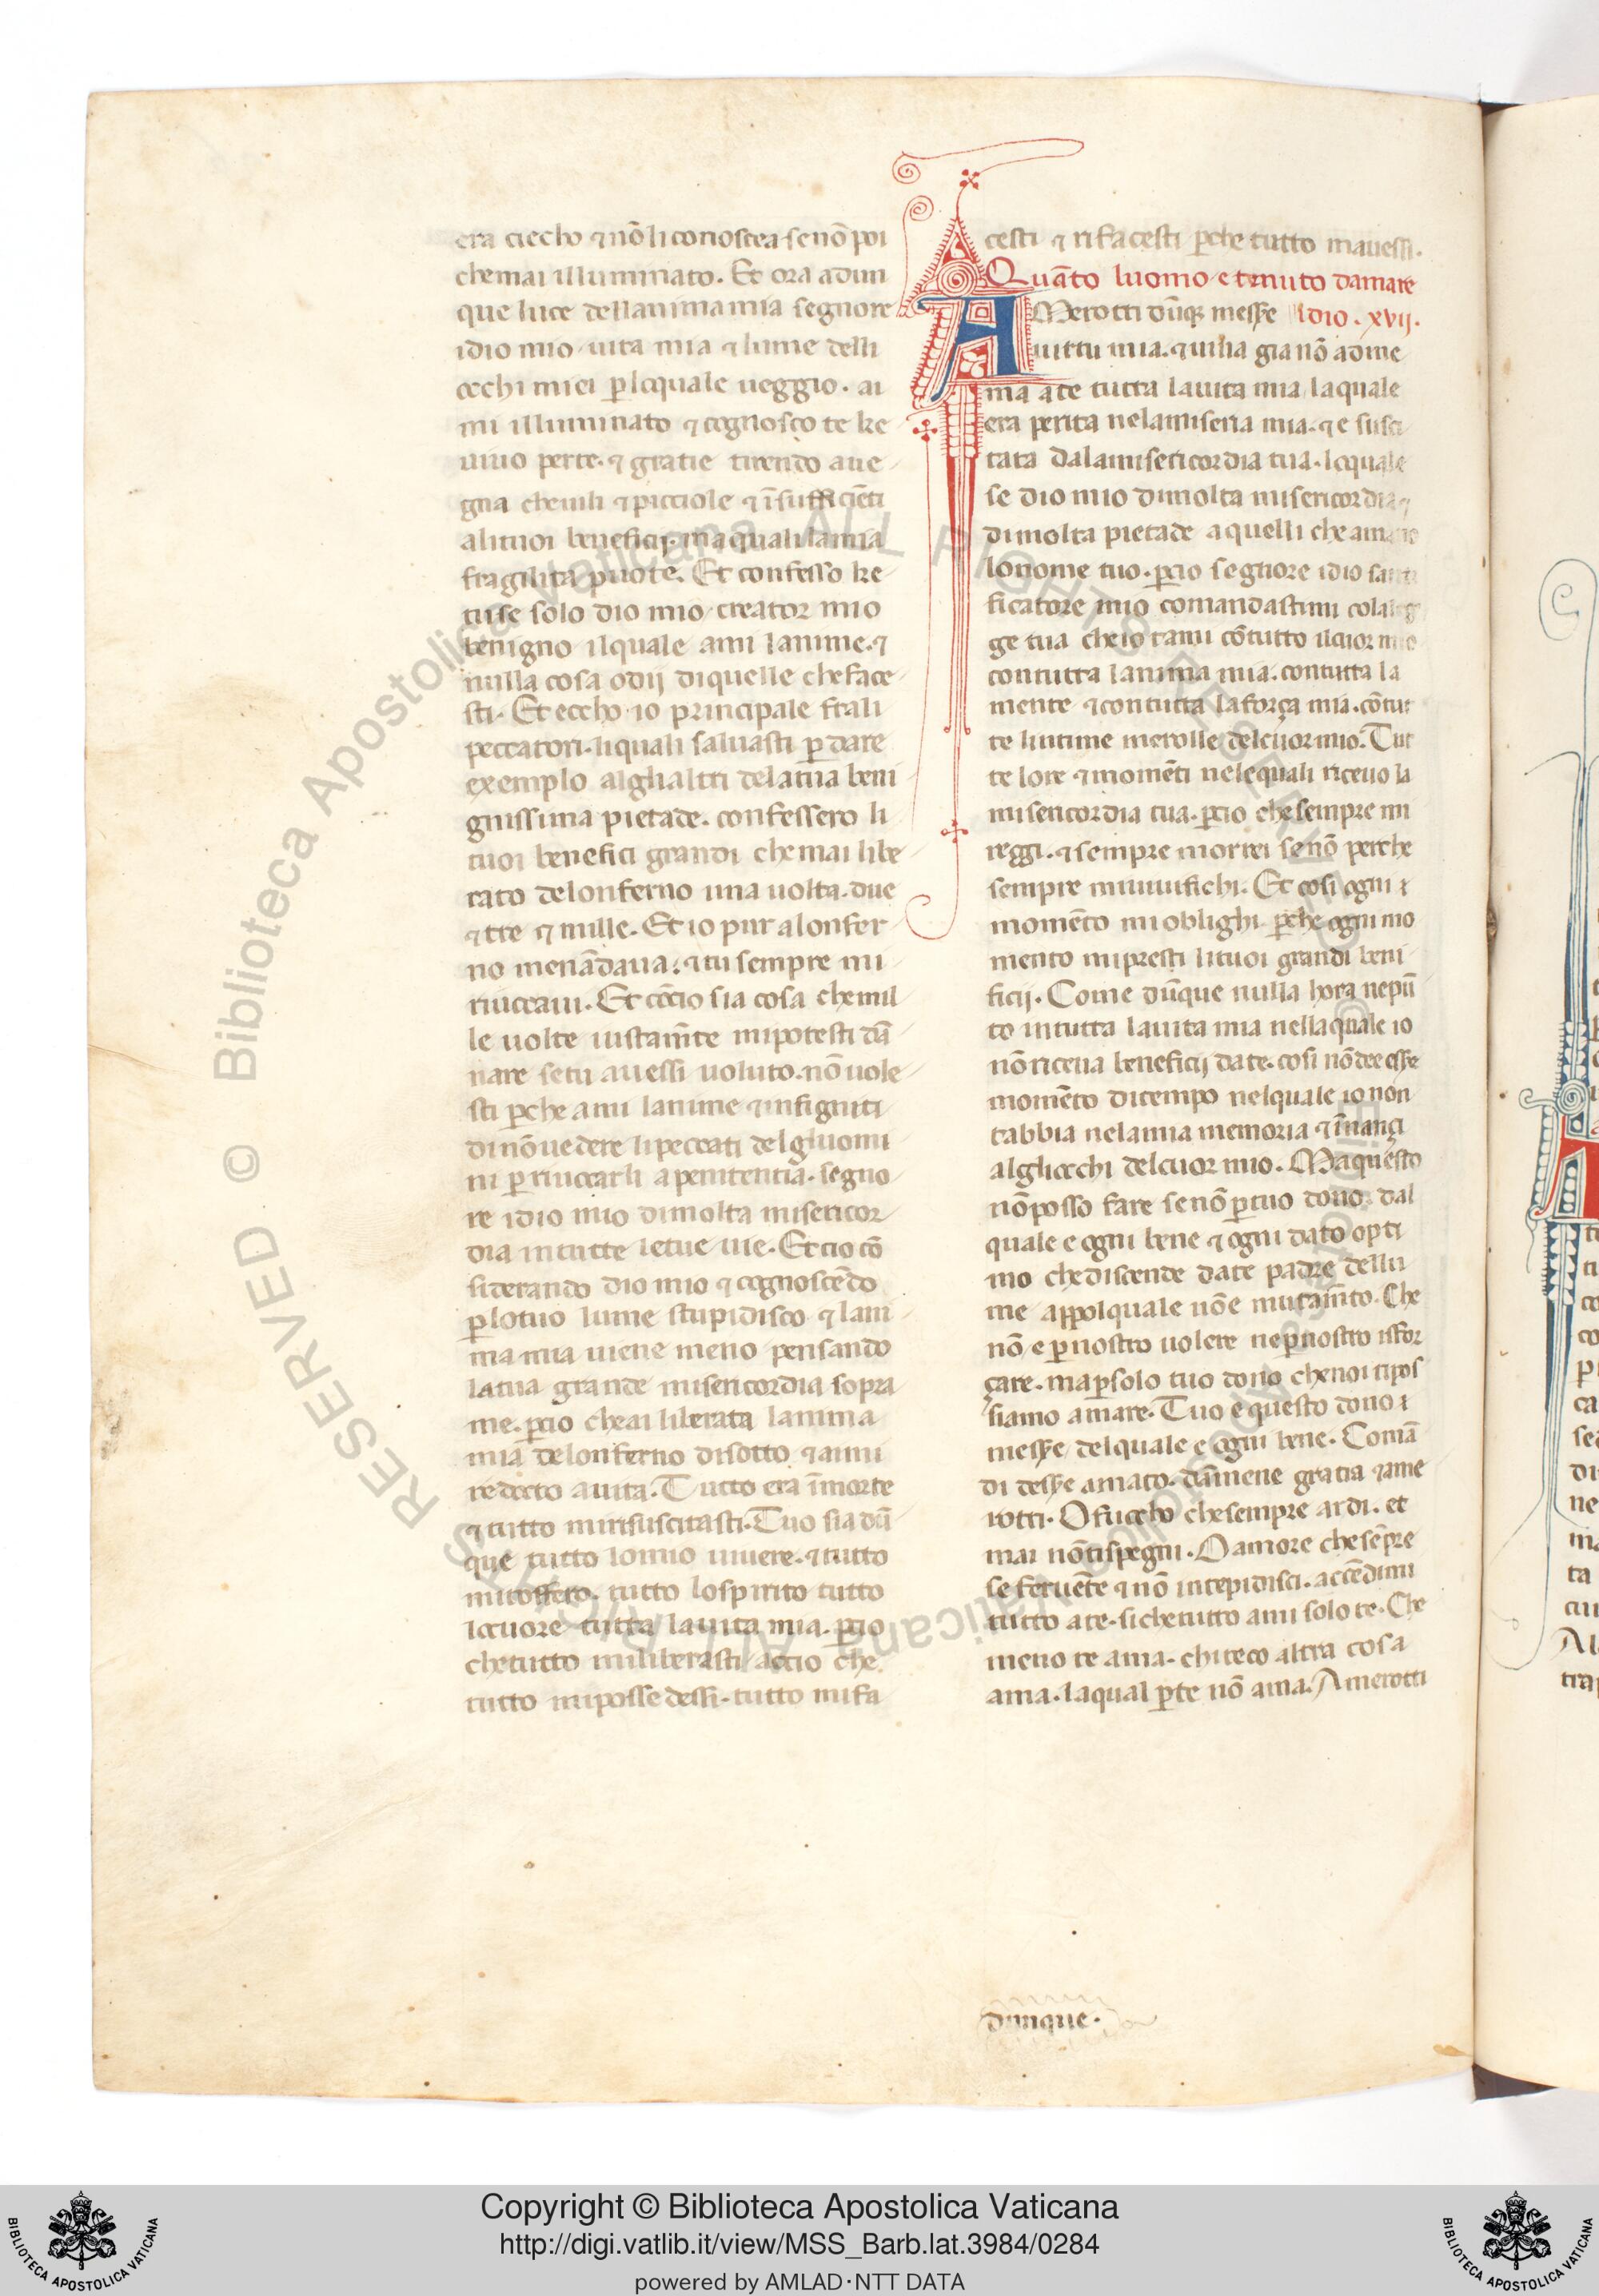 era ciecho ⁊ nō li conoscea se nō poi
che mai illuminato. Et ora adun
que luce dellanima mia segnore
idio mio uita mia ⁊ lume delli
occhi miei p̲ loquale ueggio. ai
mi illuminato ⁊ cognosco te ke
uiuo perte. ⁊ gratie tirendo aue
gna cheuili ⁊ picciole ⁊ īsufficiēti
alituoi beneficij. ma quali la mia
fragilita puote. Et confesso ke
tu se solo dio mio creator mio
benigno ilquale ami lanime. ⁊
nulla cosa odij diquelle che face
sti. Et eccho io principale frali
peccatori. liquali saluasti p̲ dare
exemplo alghaltri delatua beni
gnissima pietade. confessero li
tuoi benefici grandi che mai libe
rato delonferno una uolta. due
⁊ tre ⁊ mille. Et io pur alonfer
no menādaua. ⁊ tu sempre mi
riuocaui. Et cōcio sia cosa che mil
le uolte iustamēte mi potesti dā
nare setu auessi uoluto. nō uole
sti p̲che ami lanime ⁊ infigniti
di nō uedere li peccati delgluomi
ni p̲ riuocarli a penitentia. segno
re idio mio dimolta misericor
dia in tutte letue uie. Et cio cō
siderando dio mio ⁊ cognoscēdo
p̲ lotuo lume stupidisco ⁊ lani
ma mia uiene meno pensando
latua grande misericordia sopra
me. p̲cio che ai liberata lanima
mia delonferno disotto ⁊ aimi
redocto a uita. Tutto era ī morte
⁊ tutto mi risuscitasti. Tuo sia dū
que tutto lomio uiuere. ⁊ tutto
mitoffero. tutto lospirito tutto
locuore tutta lauita mia. p̲cio
che tutto miliberasti accio che
tutto mi possedessi. tutto mi fa
cesti ⁊ rifacesti p̲che tutto mauessi.
Quāto luomo e tenuto damare
Idio. xvij.
AMerotti dūq; messe
uirtu mia. ⁊ uilia gia nō a me
ma a te tutta lauita mia laquale
era perita nelamiseria mia. ⁊ e susci
tata dalamisericordia tua. loquale
se dio mio dimolta misericordia ⁊
dimolta pietade a quelli che amano
lonome tuo. p̲cio segnore idio santi
ficatore mio comandastimi colaleg
ge tua che io tami cō tutto ilcuor mio
con tutta lanima mia. con tutta la
mente ⁊ con tutta laforça mia. cō tut
te lintime merolle delcuor mio. Tut
te lore ⁊ momēti nelequali riceuo la
misericordia tua. p̲cio che sempre mi
reggi. ⁊ sempre morrei se nō perche
sempre miuiuifichi. Et cosi ogni
momēto mi oblighi p̲che ogni mo
mento mi presti lituoi grandi beni
ficij. Come dūque nulla hora ne pū
to in tutta lauita mia nellaquale io
nō riceua beneficij da te. cosi nō dee esse
momēto di tempo nelquale io non
tabbia nelamia memoria ⁊ īnançi
alghocchi delcuor mio. Ma questo
nō posso fare se nō p̲ tuo dono. dal
quale e ogni bene ⁊ ogni dato opti
mo che discende da te padre dellu
me appolquale nō e mutamēto. Che
nō e p̲ nostro uolere ne p̲ nostro isfor
çare. ma p̲ solo tuo dono che noi ti pos
siamo amare. Tuo e questo dono
messe delquale e ogni bene. Comā
di desse amato. dāmene gratia ⁊ ame
rotti. O fuocho che sempre ardi. et
mai nō tispegni. O amore che sēpre
se feruēte ⁊ nō intepidisci. accēdimi
tutto a te. si che tutto ami solo te. Che
meno te ama. chi teco altra cosa
ama. laqual p̲ te nō ama. Amerotti
dunque.
Biblioteca Apostolica Vaticana ALL RIGHTS RESERVED ©
Copyright © Biblioteca Apostolica Vaticana
http://digi.vatlib.it/view/MSS_Barb.lat.3984/0284
powered by AMLAD·NTT DATA
BIBLIOTECA APOSTOLICA VATICANA
BIBLIOTECA APOSTOLICA VATICANA